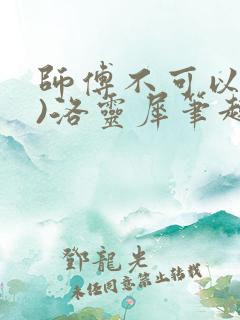 師傅不可以
)洛靈犀筆趣
鄧龍光
未经同意禁止转载